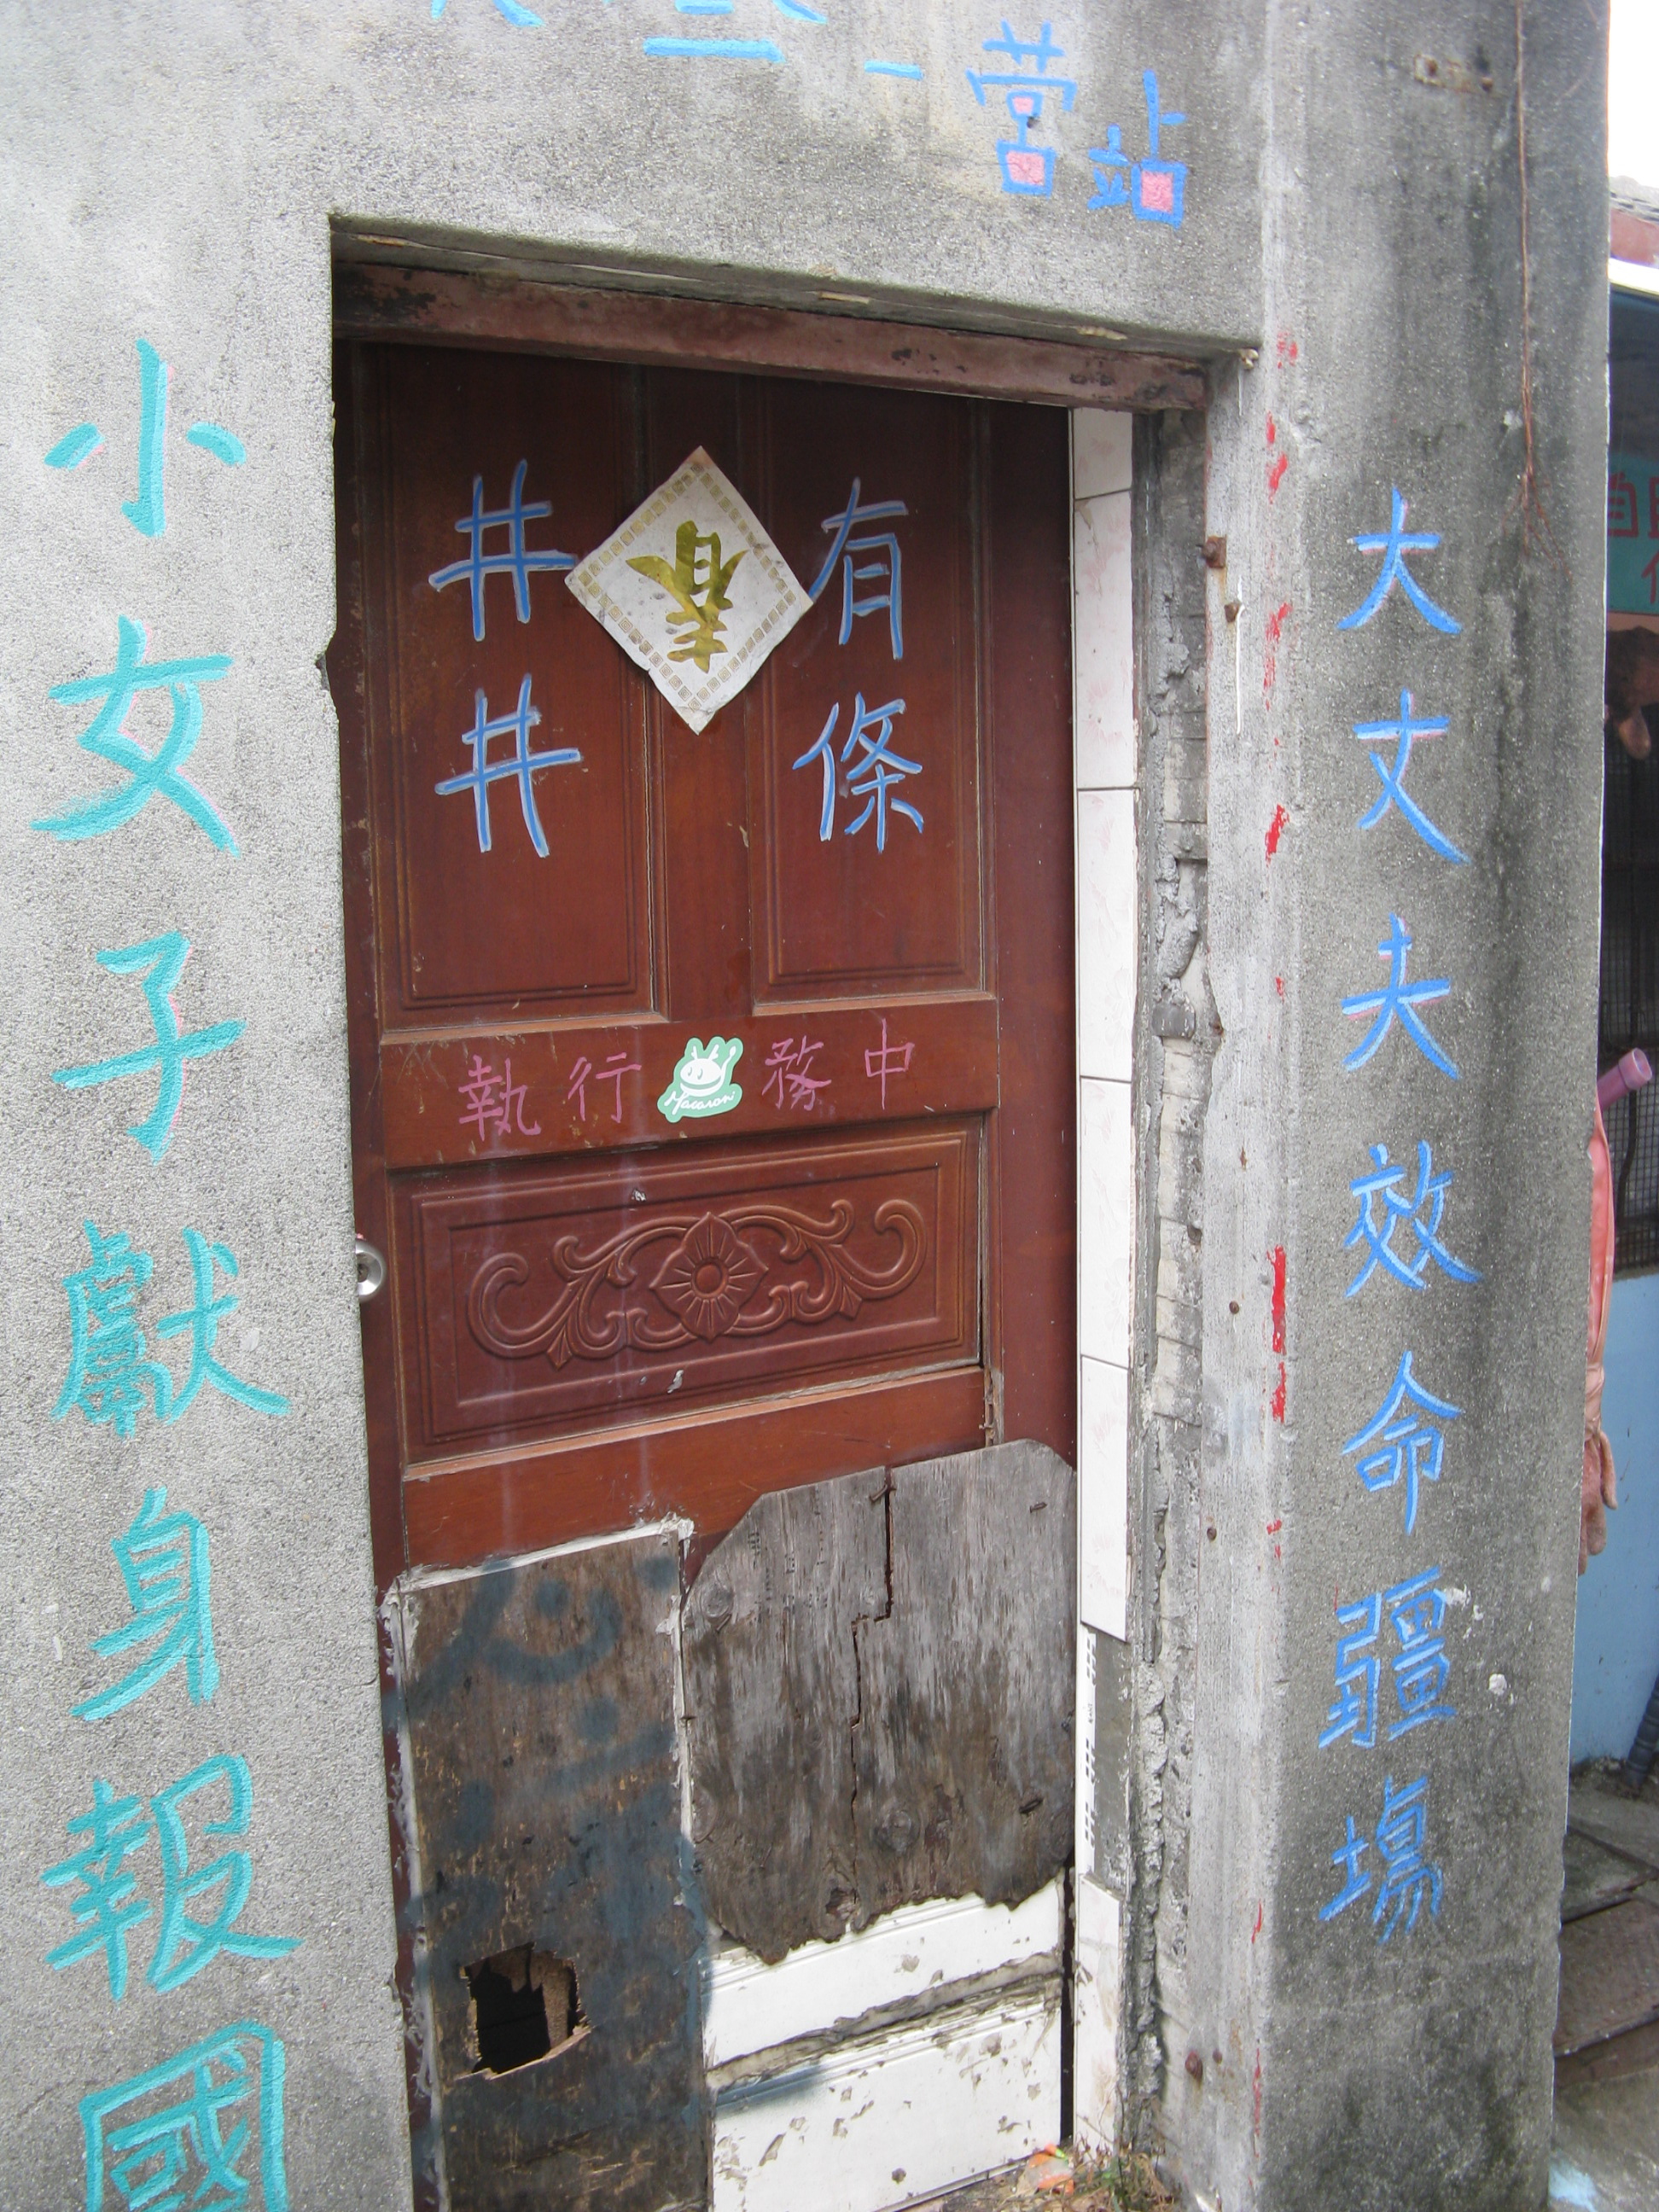 一營站
大丈夫效命疆場
小女子獻身報國
井井 春 有條
執行 Macaron 務中